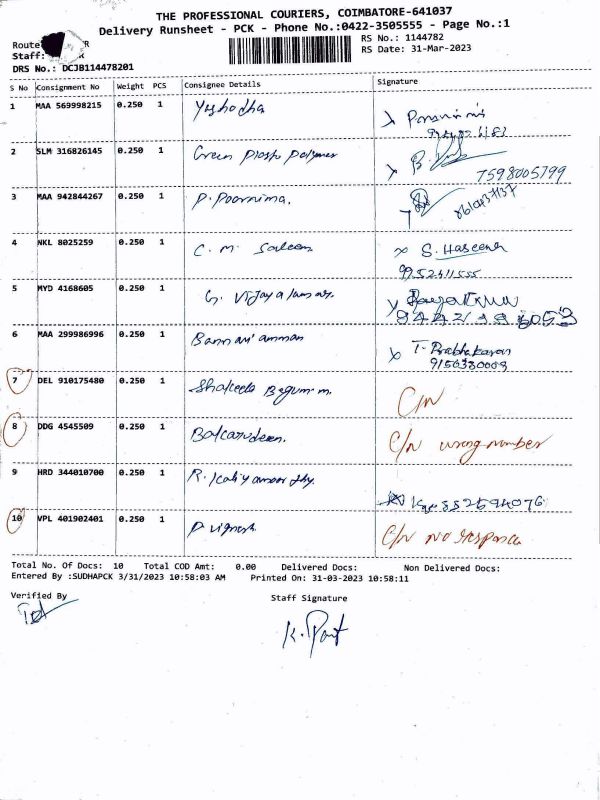 THE PROFESSIONAL COURIERS, COIMBATORE-641037
Delivery Runsheet - PCK - Phone No.:0422-3505555 - Page No.:1
Route R RS No.: 1144782
Staff: K RS Date: 31-Mar-2023
DRS No.: DCJB114478201
S No Consignment No Weight PCS Consignee Details Signature
1 MAA 569998215 0.250 1 Yashodha
2 SLM 316826145 0.250 1 Green Plasto Polymer B. 7598005799
3 MAA 942844267 0.250 1 P. Poornima.
4 NKL 8025259 0.250 1 C. m. Saleem x S. Haseena
9952411555
5 MYD 4168605 0.250 1 G.
6 MAA 299986996 0.250 1 Bannari amman x T. Prabhakaran
9150330009
7 DEL 910175480 0.250 1 Shakeela Begum m. C/N
8 DDG 4545509 0.250 1 C/N wrong number
9 HRD 344010700 0.250 1 R.
10 VPL 401902401 0.250 1 P vignesh C/N no response
Total No. Of Docs: 10 Total COD Amt: 0.00 Delivered Docs: Non Delivered Docs:
Entered By :SUDHAPCK 3/31/2023 10:58:03 AM Printed On: 31-03-2023 10:58:11
Verified By Staff Signature
K.